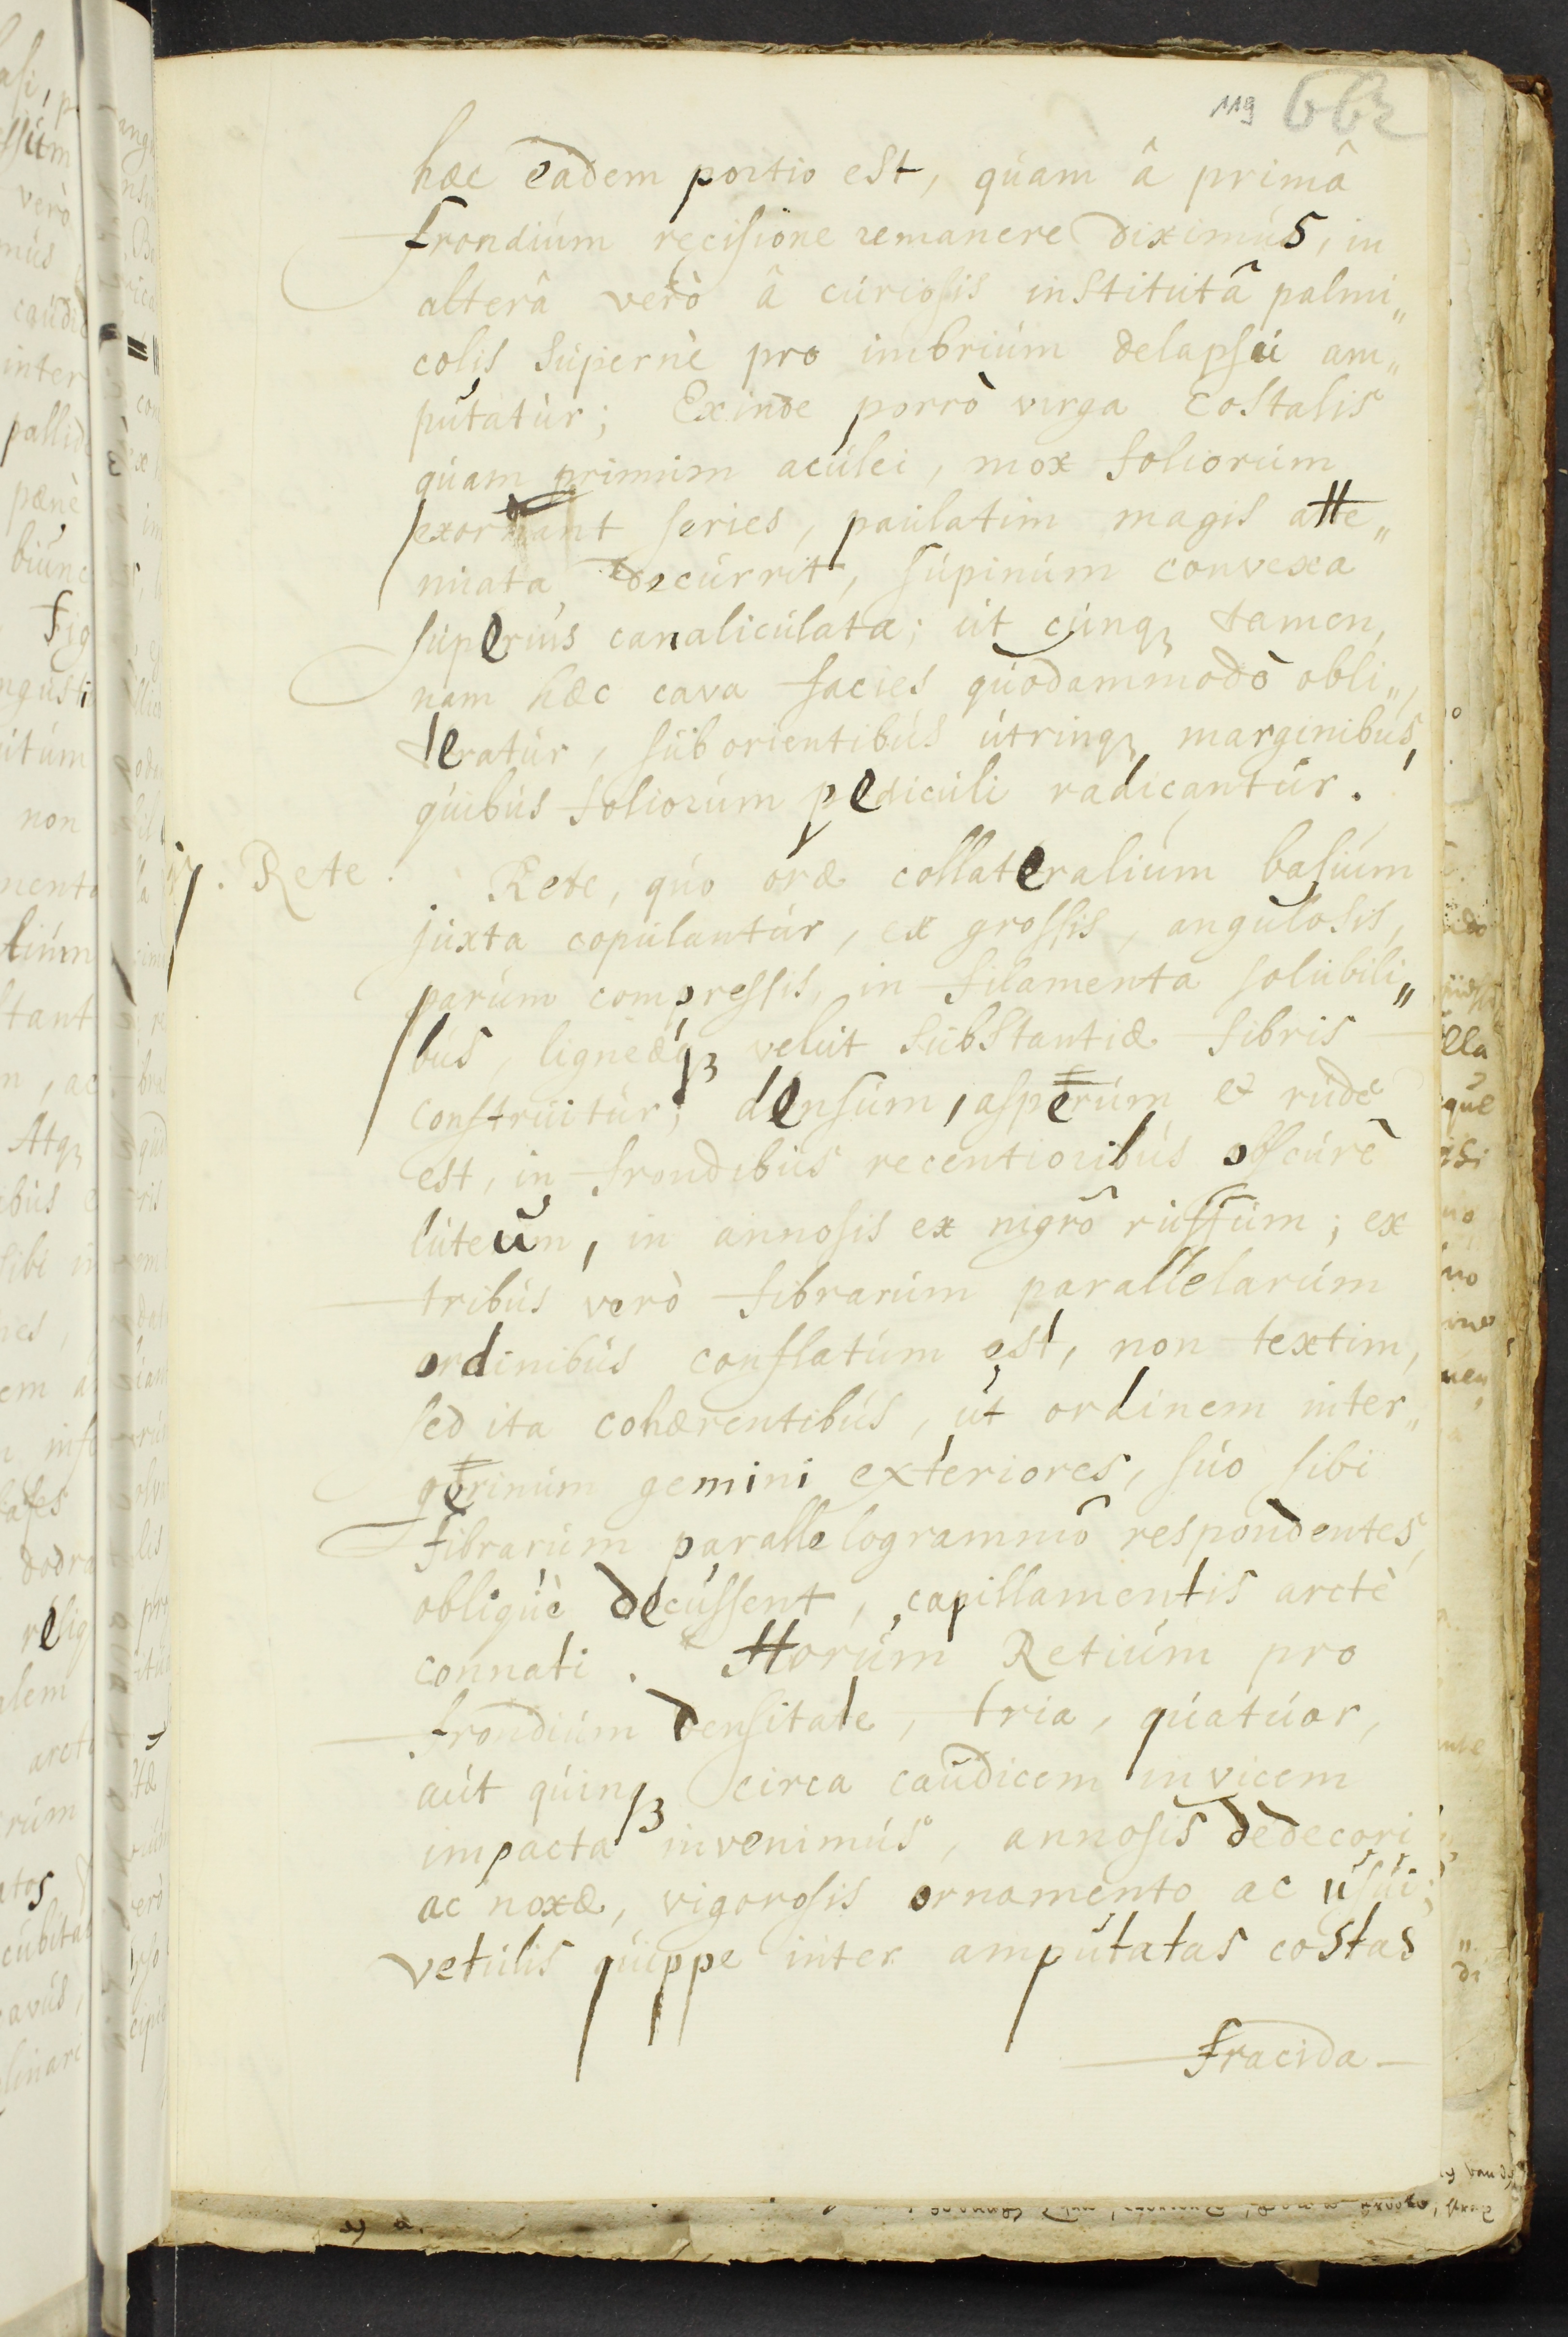 119 662
hæc eadem portio est, quam â primâ
frondium recisione remanere diximus, in
alterâ verò â curiosis institutâ palmi„
colis supernè pro imbrium delapsu am„
putatur; Exinde porrò virga costalis
quam primùm aculei, mox foliorum
exornant series, paulatim magis atte„
nuata decurrit, supinùm convexa
superius canaliculata; ut cunq₃ tamen,
nam hæc cava facies quodammodò obli„
teratur, sub orientibus utrinq₃ marginibus,
quibus foliorum pediculi radicantur.
Rete. Rete, quo oræ collateralium basium
juxta copulantur, ex grossis, angulosis,
parum compressis, in filamenta solubili„
bus, ligneæq₃ velut substantiæ fibris
construitur; densum, asperum & rude
est, in frondibus recentioribus obscurè
luteum, in annosis ex nigro russum; ex
tribus verò fibrarum parallelarum
ordinibus conflatum est, non textim,
sed ita cohærentibus, ut ordinem inter„
gerinum gemini exteriores, suo sibi
fibrarum parallelogrammo respondentes,
obliquè decussent, capillamentis arctè
connati. Horum Retium pro
frondium densitate, tria, quatuor,
aut quinq₃ circa caudicem invicem
impacta invenimus, annosis dedecori
ac noxæ, vigorosis ornamento ac usui;
vetulis quippe inter amputatas costas
fracida